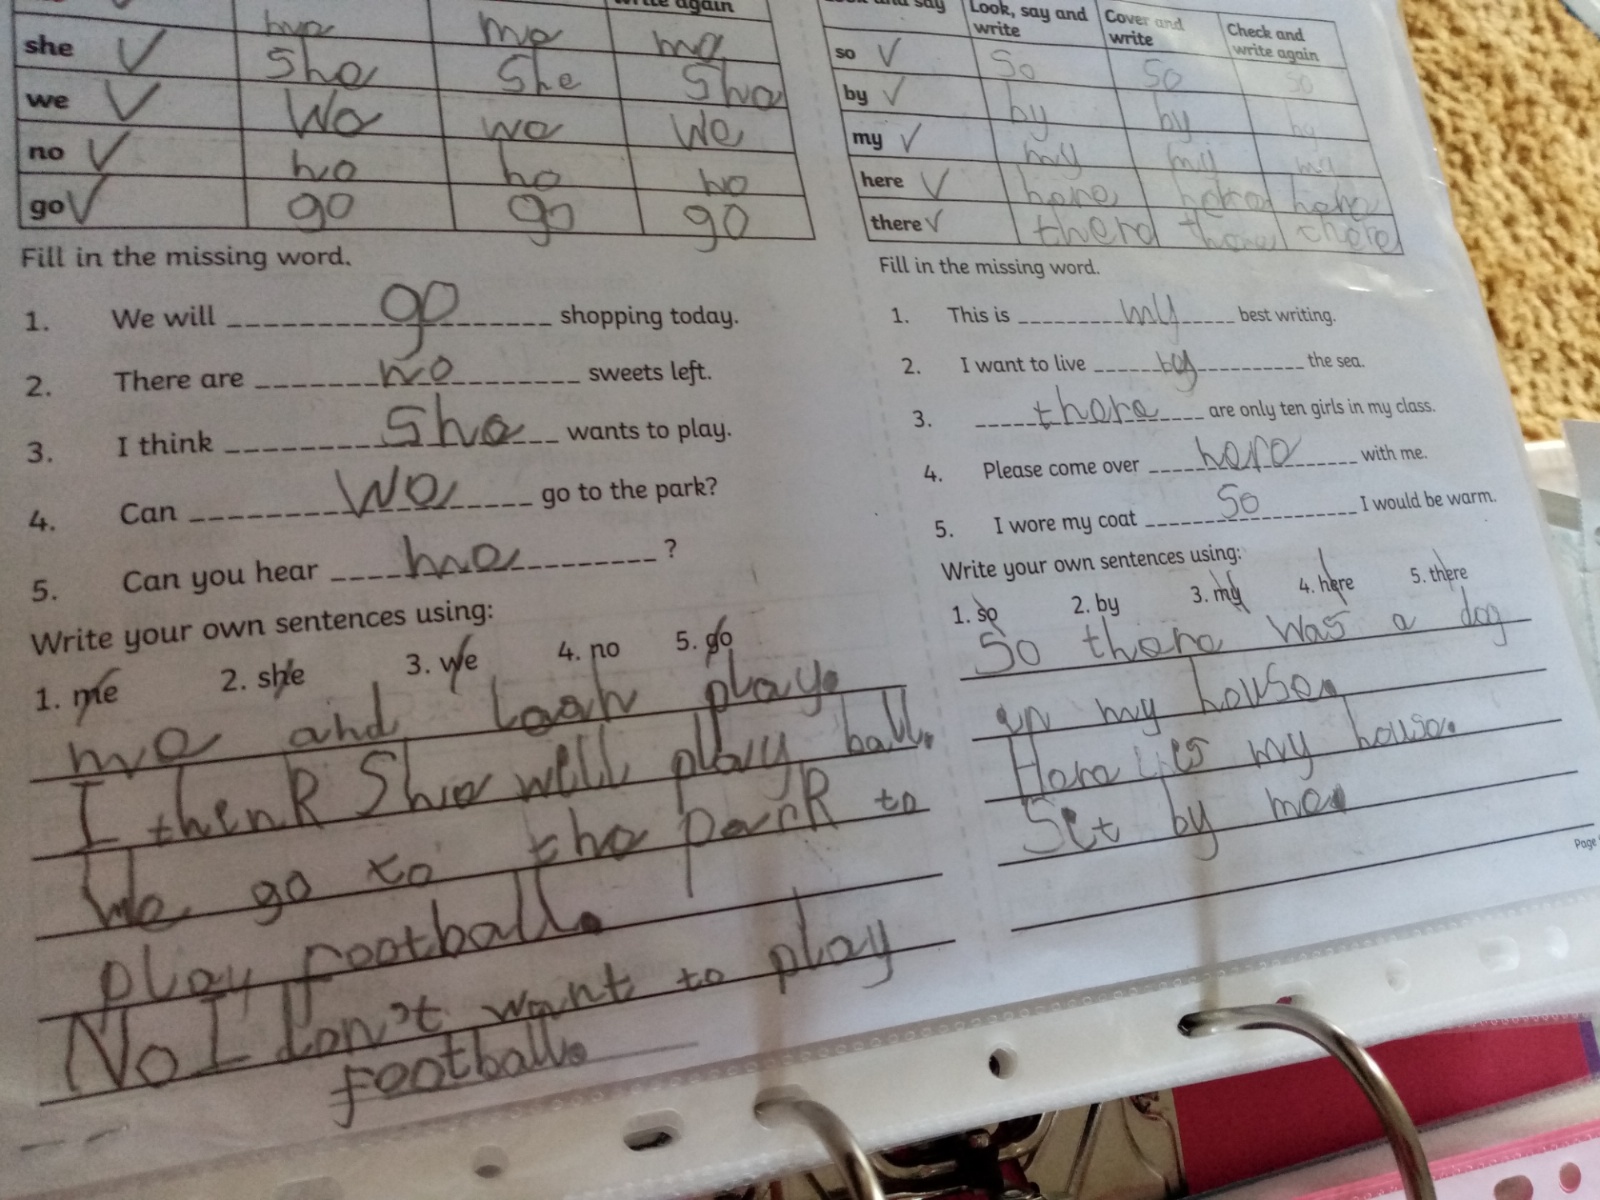 write again
me me me
she she she she
we we we we
no no no no
go go go go
Fill in the missing word.
1. We will go shopping today.
2. There are no sweets left.
3. I think she wants to play.
4. Can we go to the park?
5. Can you hear me ?
Write your own sentences using:
1. me 2. she 3. we 4. no 5. go
me and leah play.
I think She will play ball.
We go to the park to
play football.
No I don't want to play
football.
and say Look, say and write Cover and write Check and write again
so so so so
by by by by
my my my my
here here here here
there there there there
Fill in the missing word.
1. This is my best writing.
2. I want to live by the sea.
3. there are only ten girls in my class.
4. Please come over here with me.
5. I wore my coat so I would be warm.
Write your own sentences using:
1. so 2. by 3. my 4. here 5. there
So there was a dog
in my house.
Here is my house.
Sit by me.
Page